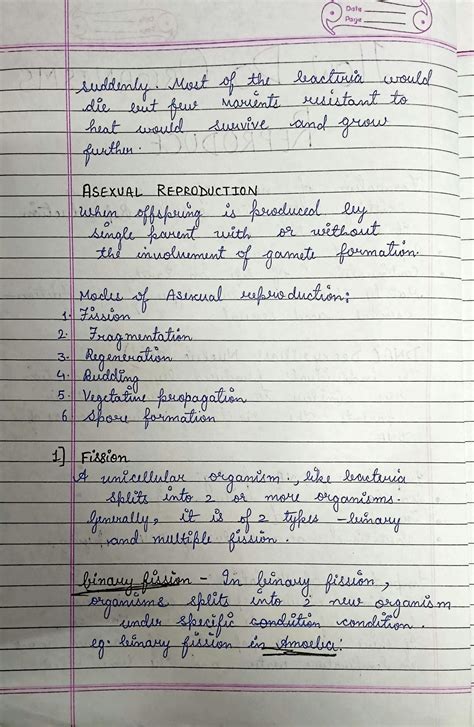 Date
Page
suddenly. Most of the bacteria would
die but few varients resistant to
heat would survive and grow
further.
ASEXUAL REPRODUCTION
When offspring is produced by
single parent with or without
the involvement of gamete formation.
Modes of Asexual reproduction:
1. Fission
2. Fragmentation
3. Regeneration
4. Budding
5. Vegetative propagation
6. Spore formation
1] Fission
A unicellular organism, like bacteria
splits into 2 or more organisms.
Generally, it is of 2 types - binary
and multiple fission.
binary fission - In binary fission,
organisms splits into 2 new organism
under specific condition condition.
eg. binary fission in Amoeba: